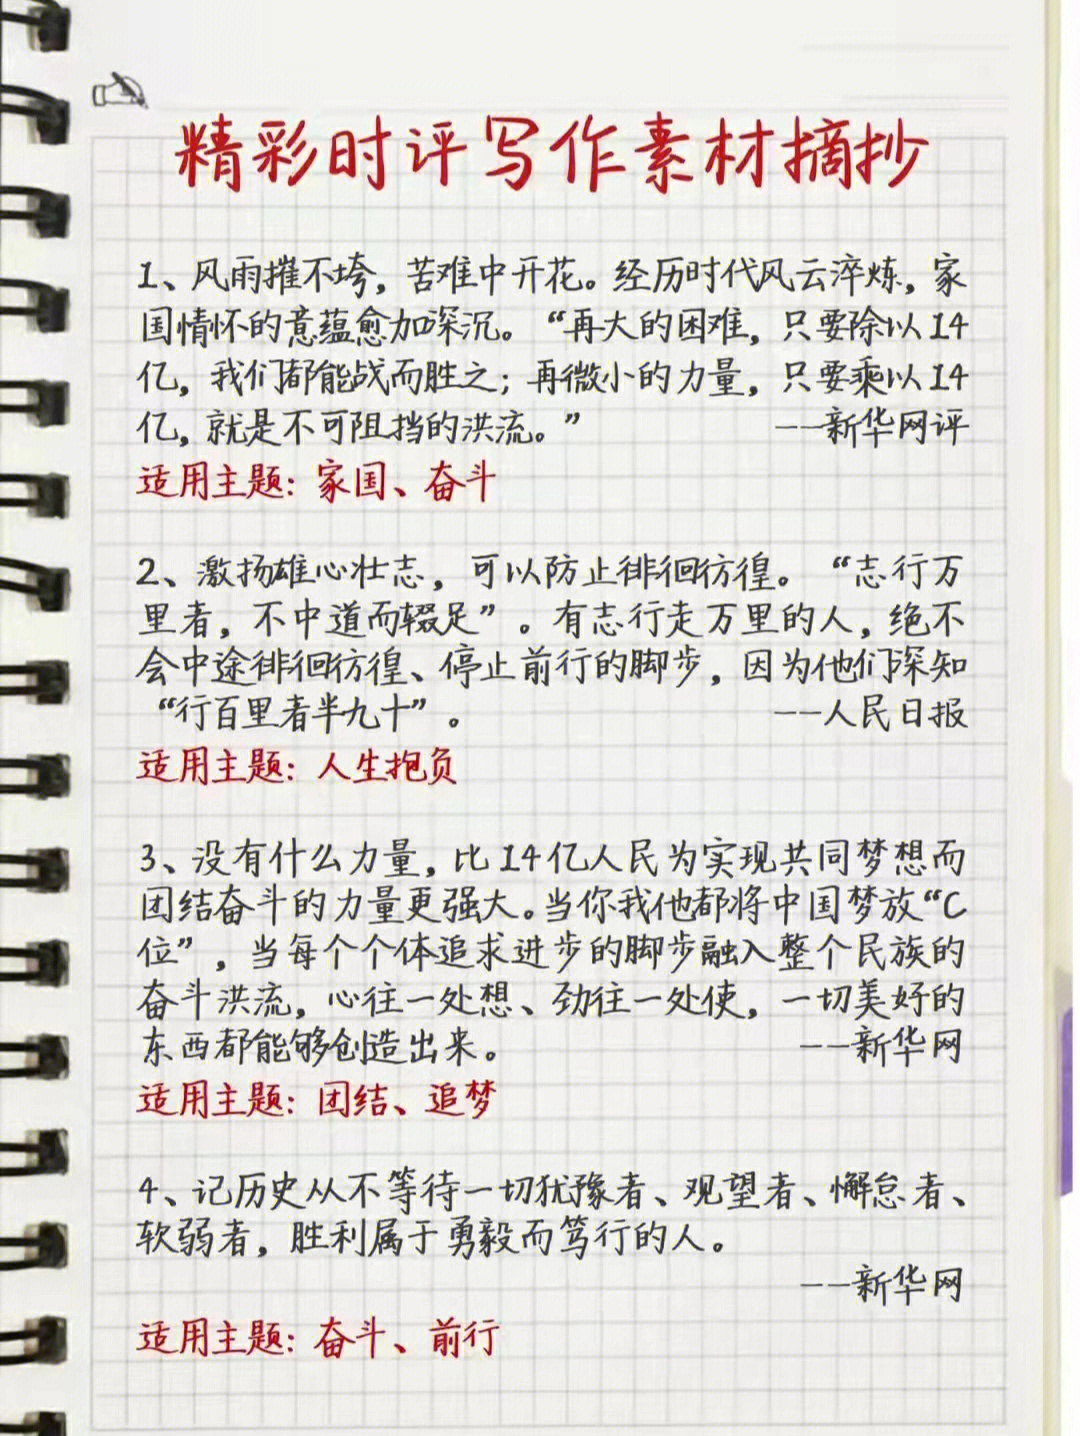 精彩时评写作素材摘抄
1、风雨摧不垮，苦难中开花。经历时代风云淬炼，家
国情怀的意蕴愈加深沉。“再大的困难，只要除以14
亿，我们都能战而胜之；再微小的力量，只要乘以14
亿，就是不可阻挡的洪流。” ——新华网评
适用主题：家国、奋斗
2、激扬雄心壮志，可以防止徘徊彷徨。“志行万
里者，不中道而辍足”。有志行走万里的人，绝不
会中途徘徊彷徨、停止前行的脚步，因为他们深知
“行百里者半九十”。 ——人民日报
适用主题：人生抱负
3、没有什么力量，比14亿人民为实现共同梦想而
团结奋斗的力量更强大。当你我他都将中国梦放“C
位”，当每个个体追求进步的脚步融入整个民族的
奋斗洪流，心往一处想、劲往一处使，一切美好的
东西都能够创造出来。 ——新华网
适用主题：团结、追梦
4、记历史从不等待一切犹豫者、观望者、懈怠者、
软弱者，胜利属于勇毅而笃行的人。
——新华网
适用主题：奋斗、前行